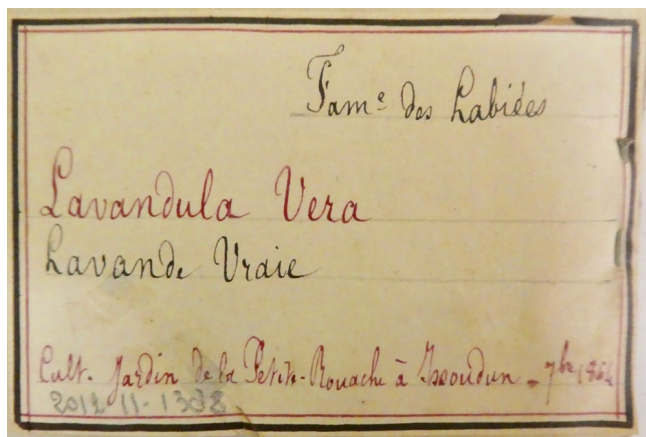 Famᵉ des Labiées
Lavandula Vera
Lavande Vraie
Cult. Jardin de la Petite-Rouache à Issoudun - 7bre 1864
2012-11-1388